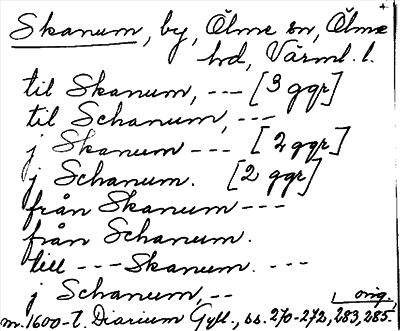 Skanum, by, Ölme sn, Ölme
hd, Värml. l.
til Skanum, --- [3 ggr]
til Schanum, ---
j Skanum --- [2 ggr]
j Schanum. [2 ggr]
från Skanum ---
från Schanum.
till --- Skanum. ---
j Schanum, --
orig.
m. 1600-t. Diarium Gyll., ss. 270-272, 283, 285.